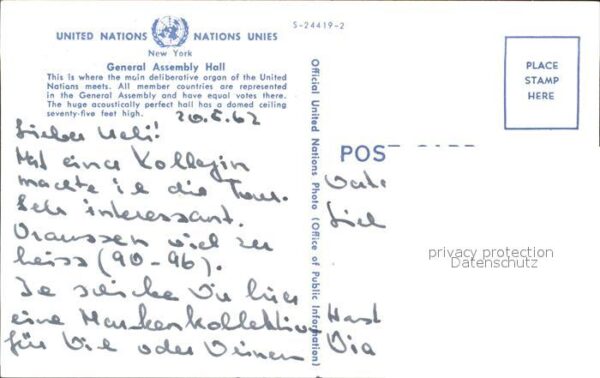 S-24419-2
UNITED NATIONS NATIONS UNIES
New York
General Assembly Hall
This is where the main deliberative organ of the United
Nations meets. All member countries are represented
in the General Assembly and have equal votes there.
The huge acoustically perfect hall has a domed ceiling
seventy-five feet high.
20.5.62
Lieber Ueli!
Mit einer Kollegin
machte ich die Tour.
Sehr interessant.
Draussen viel zu
heiss (90-96).
Je schicke Dir hier
eine Markenkollektion
für Dich oder Deinen
Official United Nations Photo (Office of Public Information)
PLACE
STAMP
HERE
POS
Hast
privacy protection
Datenschutz